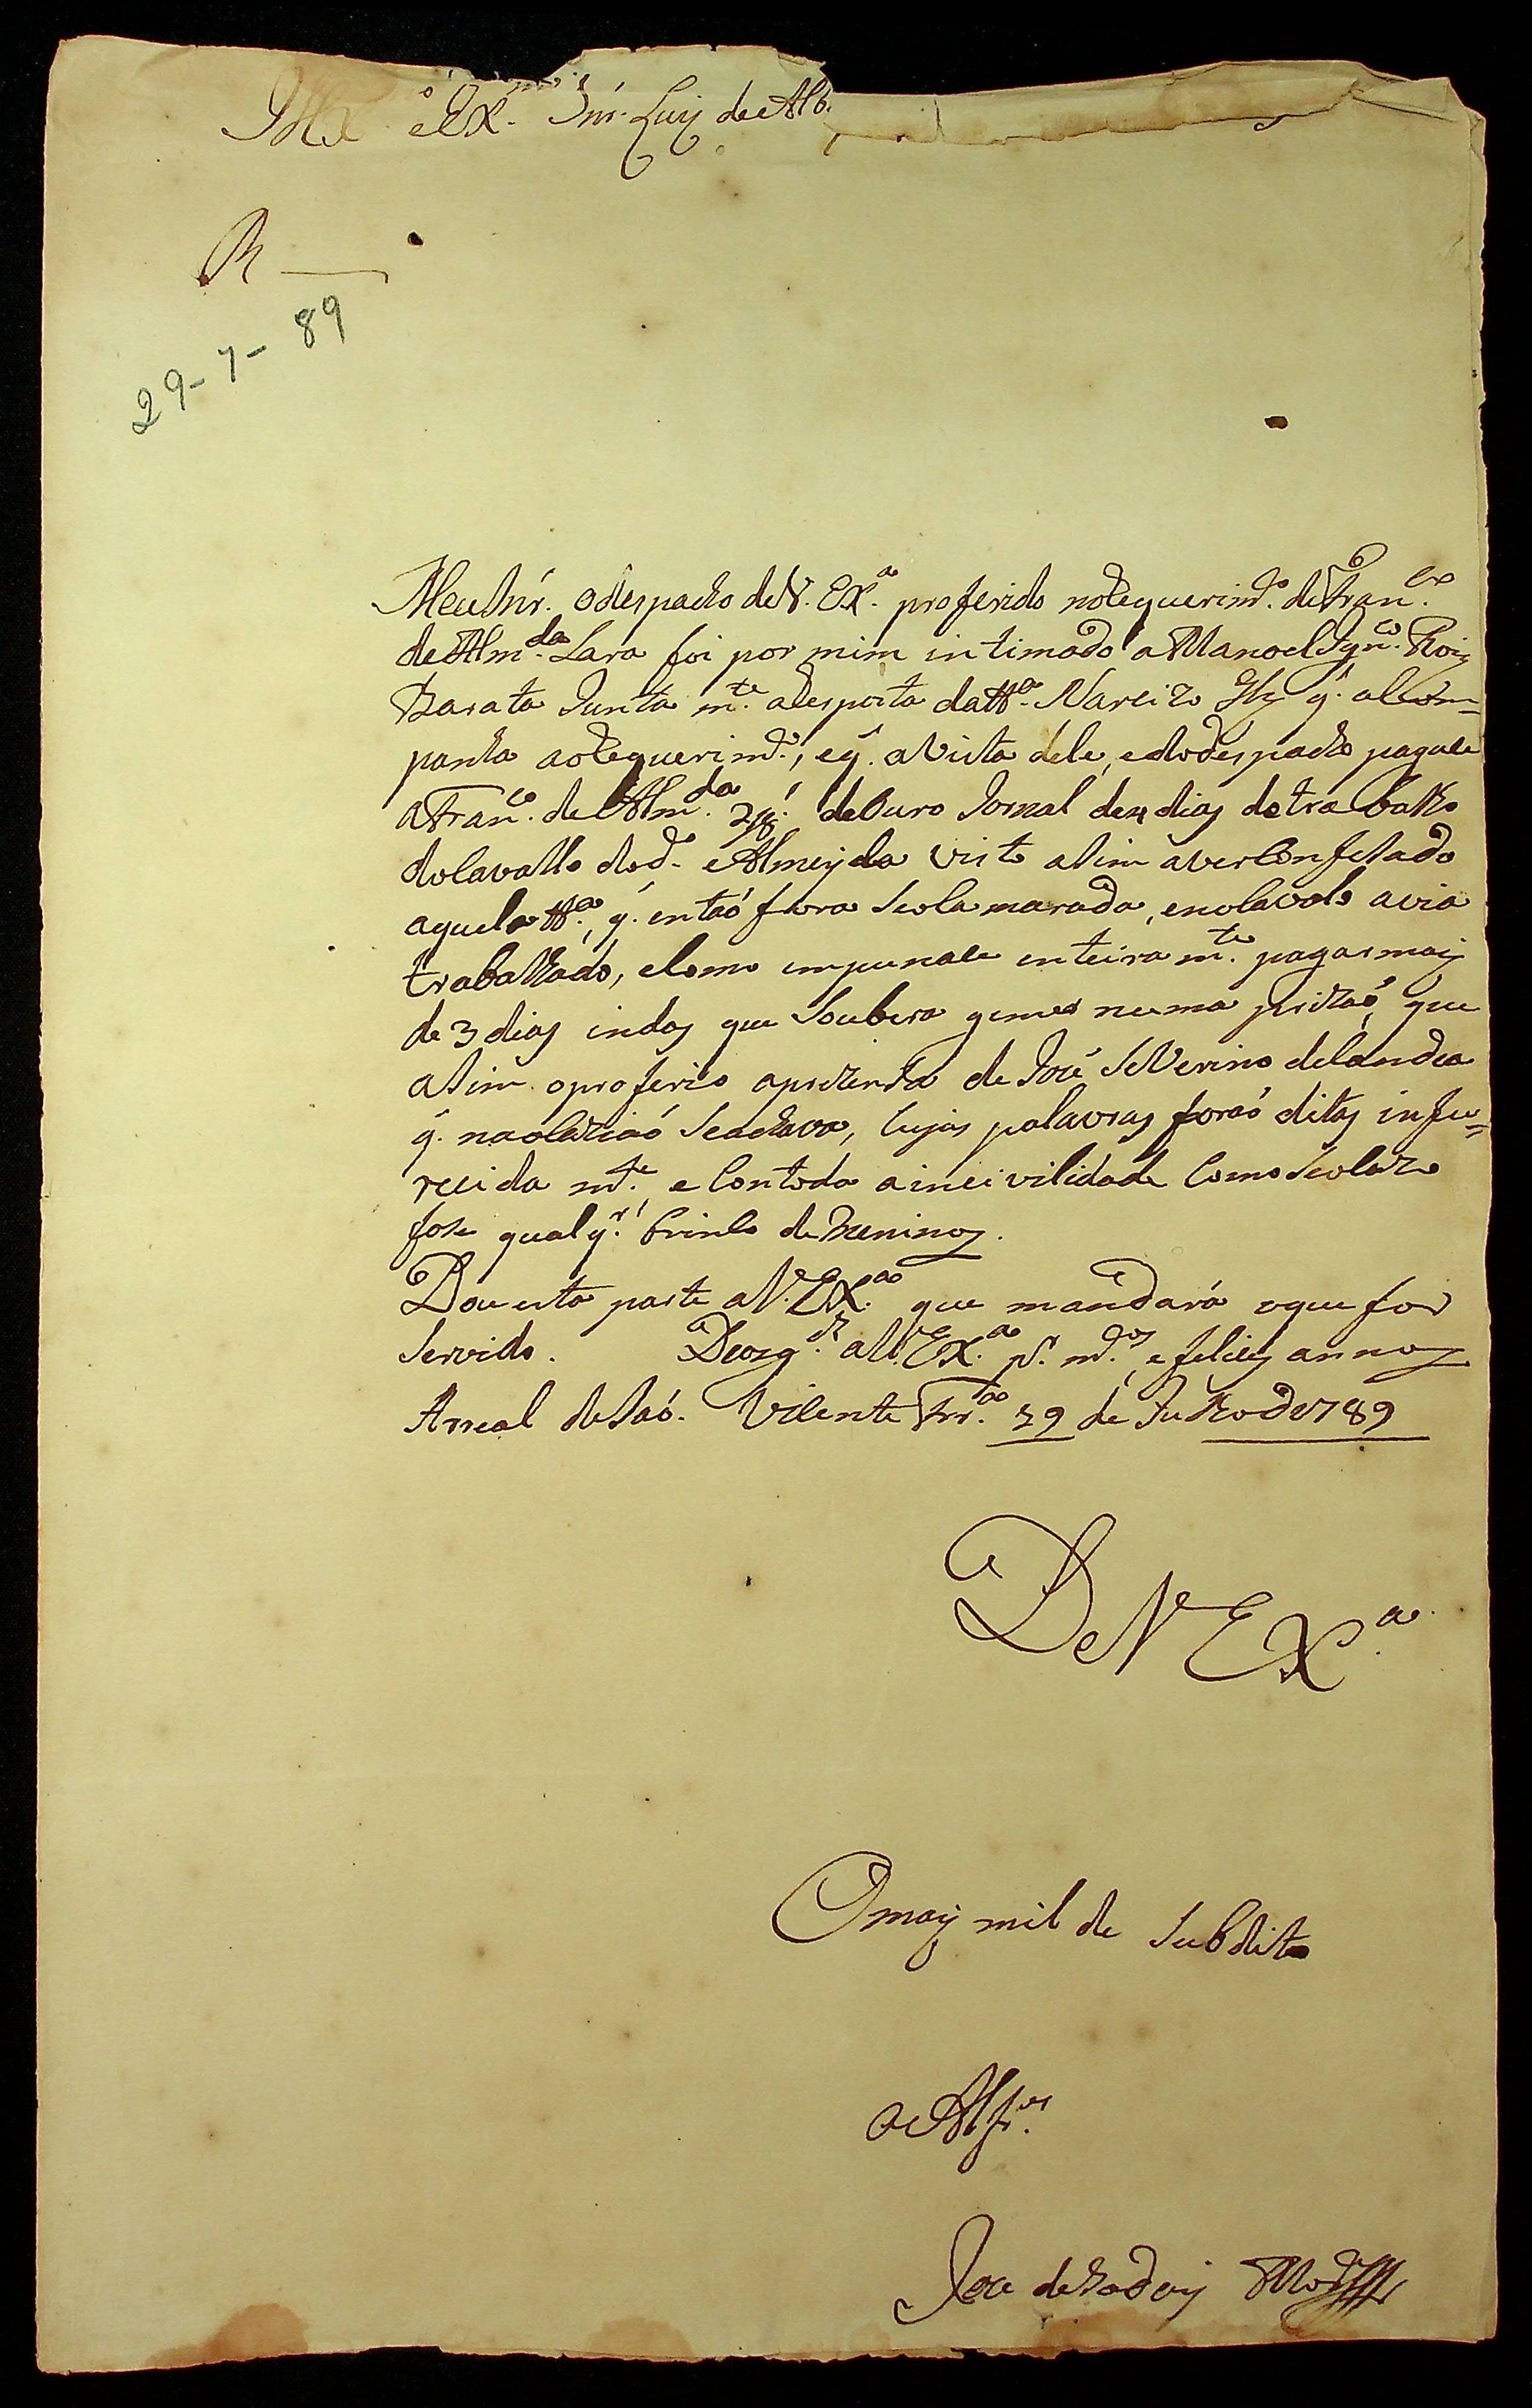 Ill.º e Ex.º Snr. Luiz de Alb.
R
29-7-89
Meu Snr. o despacho de V. Ex.ª proferido no requerim.to de Fran.co
de Alm.da Lara foi por mim intimado a Manoel Ign.co Roiz
Barata Junta m.te a resposta da
panha ao requerim.to, e q. a vista dele, e do despacho pagace
a Fran.co de Alm.da de ouro Jornal de 4 dias de trabalho
do Cavallo do d.º Almeyda visto asim aver Confesado
aquela q. entaó fora Seo Camarada, e no Cavalo avia
trabalhado, e Como empunace enteira m.te pagar mais
de 3 dias indas que Soubera gemer numa prizaó, que
asim o proferio a prezensa de José Severino
q. na ocaziaó Se achava, Cujas palavras foraó ditas infu=
recida m.te, e Com toda a incivilidade Como Se o Cazo
fose qualq.r brinco de meninos.
Dou esta parte a V. Ex.ª que mandará o que for
Servido. Deos g.de a V. Ex.ª p.r m.tos e felices annos
Arreal de Saó Vicente Frr.ª 29 de Julho de 1789
De V Ex.ª
O mais umilde Subdito
o Alfr.es
Joze de